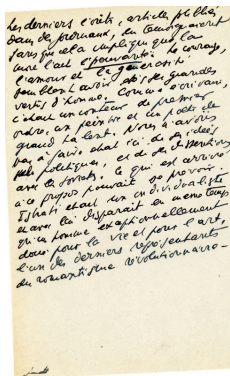 Les derniers écrits, articles publiés
dans des journaux, en témoignèrent
sans que cela implique que la
mort l'ait épouvanté. Le courage,
l'amour et la générosité
semblent avoir été ses grandes
vertus d'homme. Comme écrivain,
c'était un conteur de premier
ordre, un peintre et un poète de
grand talent. Nous n'avons
pas à faire état ici de ses idées
politiques, et de ses
avec les Soviets. Ce qui est arrivé
à ce propos pouvait se prévoir.
Istrati était un individualiste
et avec lui disparaît en même temps
qu'un homme exceptionnellement
doué pour la vie et pour l'art,
l'un des derniers représentants
du romantisme révolutionnaire.